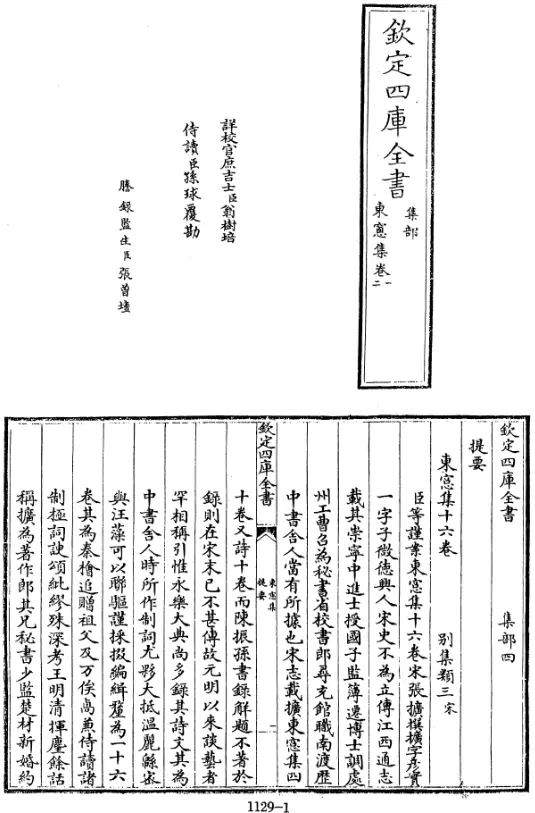 欽定四庫全書
集部
東窓集卷一
二
詳校官庶吉士臣翁樹培
侍讀臣孫球覆勘
謄錄監生臣張曾壚
欽定四庫全書
集部四
提要
東窓集十六卷
別集類三宋
臣等謹案東窓集十六卷宋張擴撰擴字彦實
一字子微德興人宋史不為立傳江西通志
載其崇寧中進士授國子監簿遷博士調處
州工曹召為秘書省校書郎尋充館職南渡歴
中書舍人當有所據也宋志載擴東窓集四
欽定四庫全書
東窓集
提要
一
十卷又詩十卷而陳振孫書錄解題不著於
錄則在宋末已不甚傳故元明以來談藝者
罕相稱引惟永樂大典尚多錄其詩文其為
中書舍人時所作制詞尤夥大抵温麗緜密
與汪藻可以聯驅謹採掇編緝釐為一十六
卷其為秦檜追贈祖父及万俟卨兼侍讀諸
制極詞諛頌紕繆殊深考王明清揮麈餘話
稱擴為著作郎其兄秘書少監楚材新婚約
1129-1